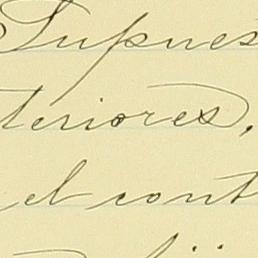 Supues
teriores,
el cont